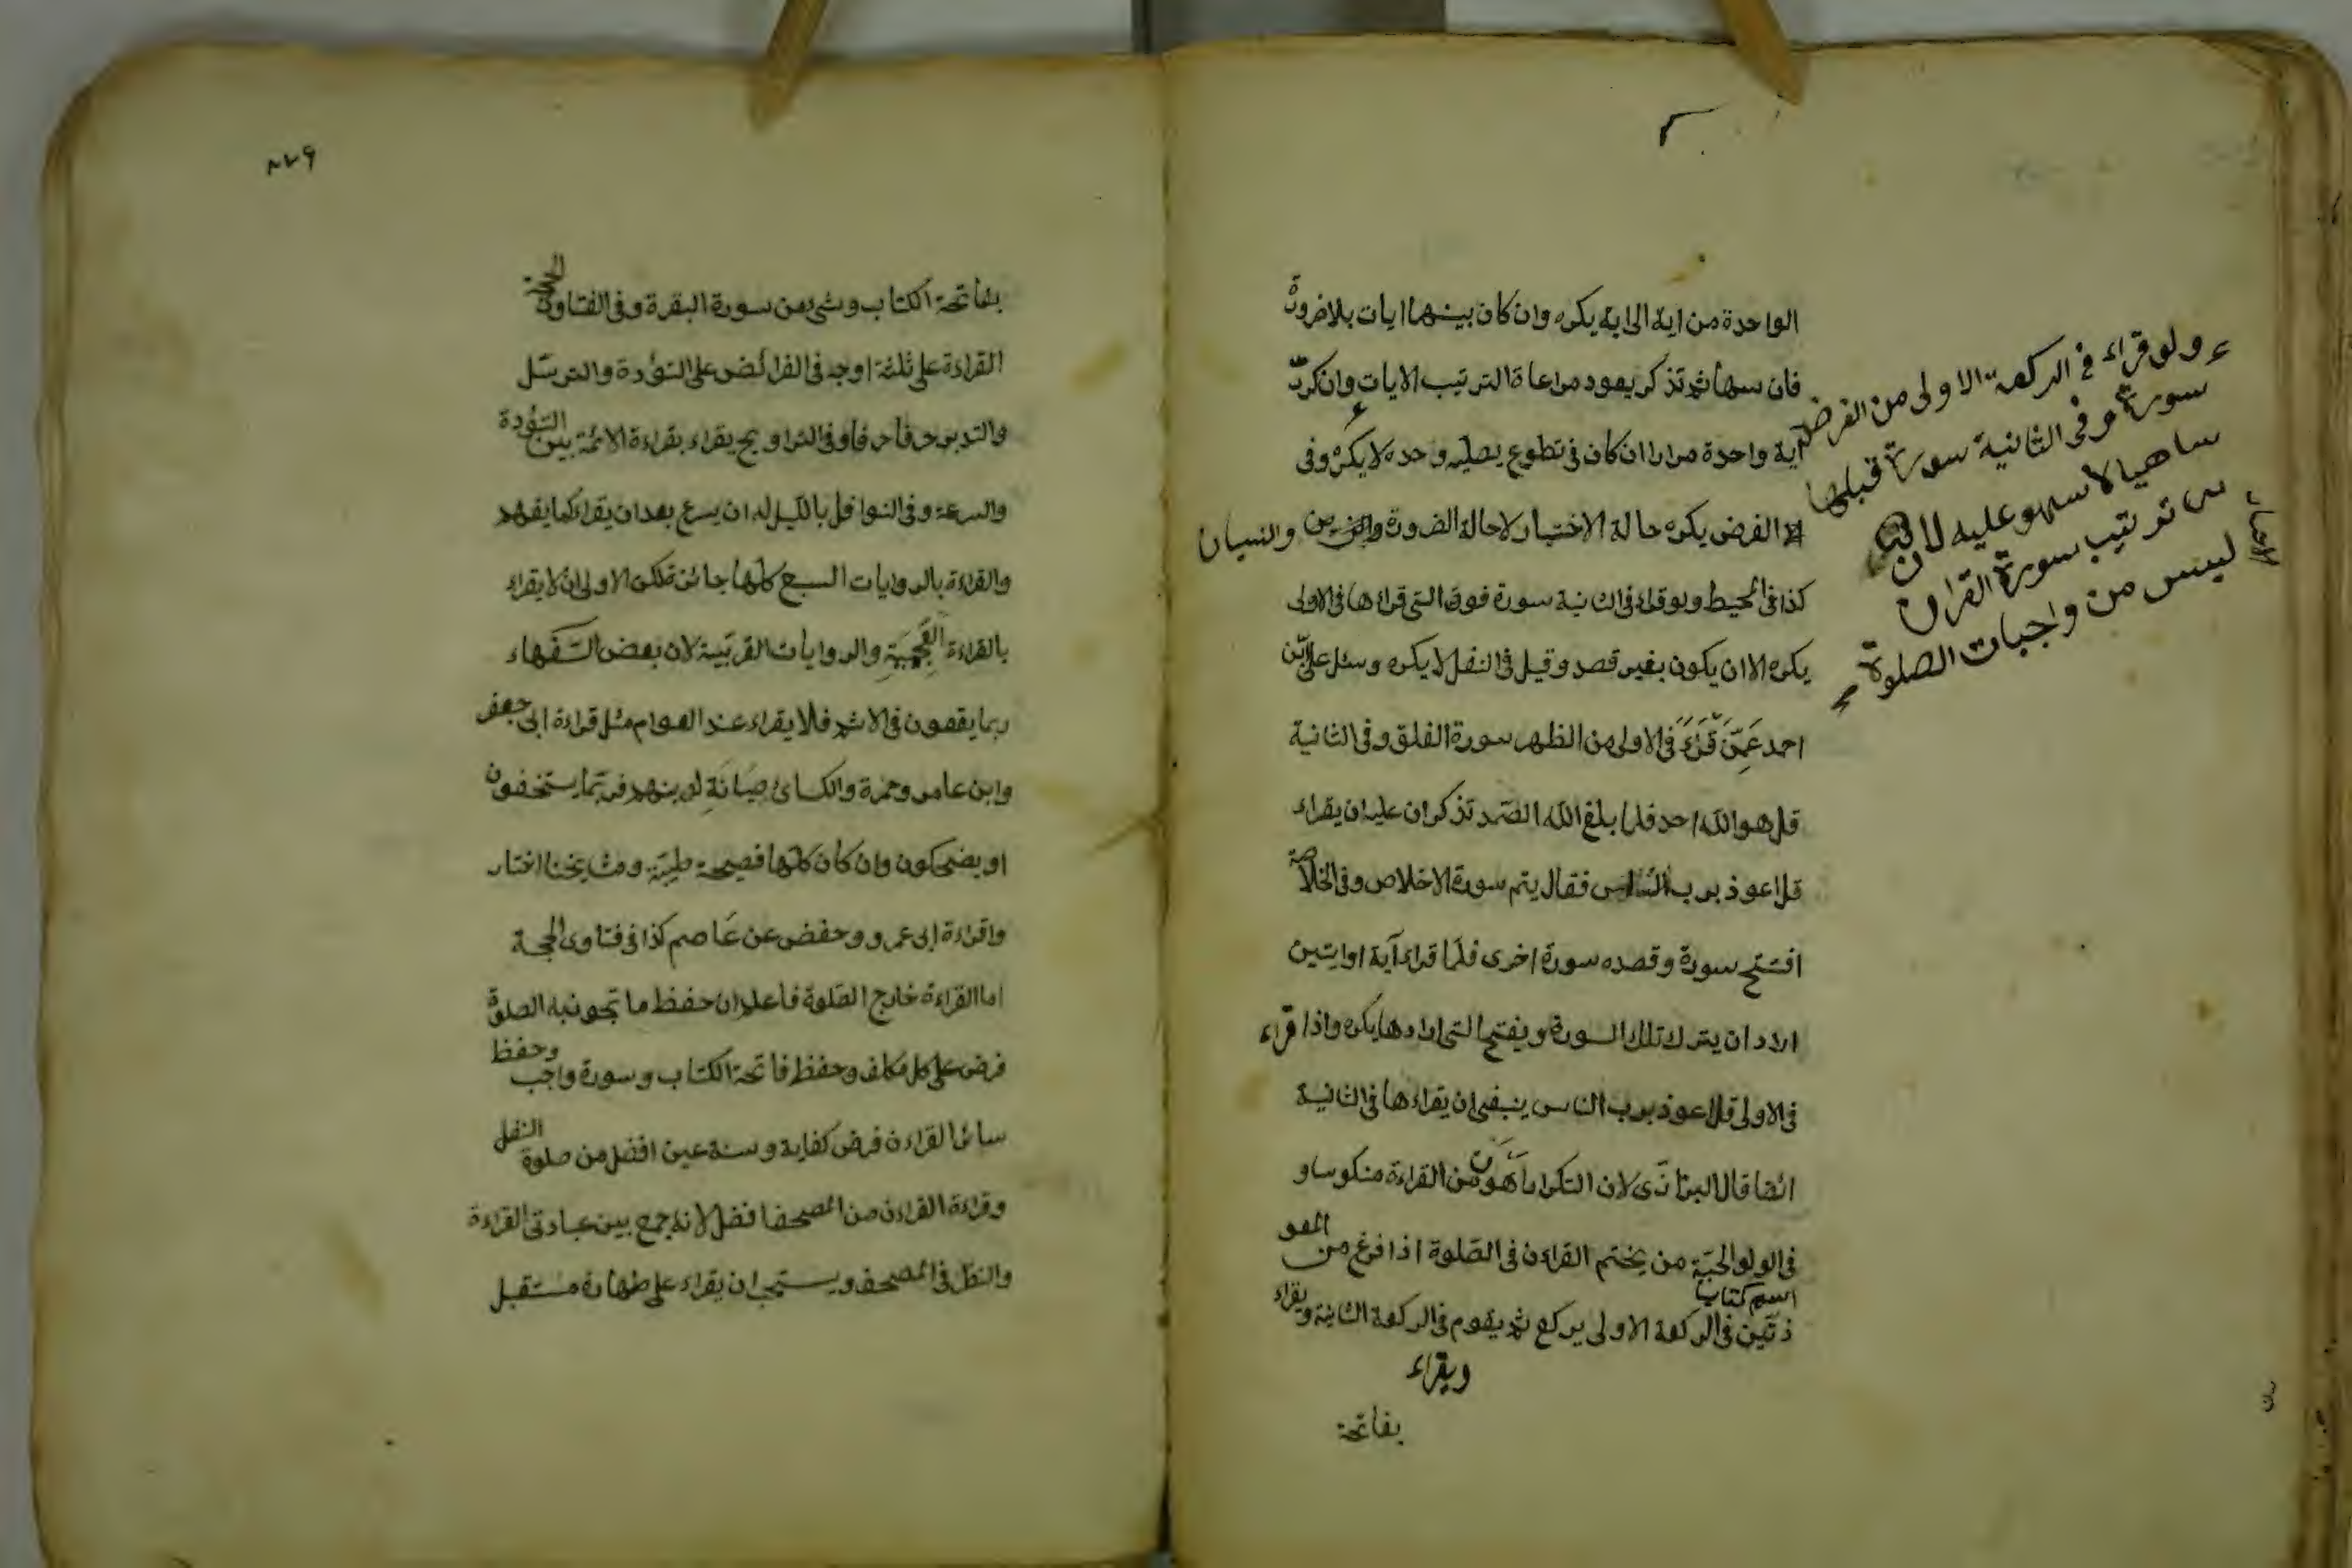 الواحدة من اية الى اية يكره وان كان بينهما ايات بلا ضرورة
فان سها ثم تذكر يعود مراعاة الترتيب الايات وان كرر
آية واحدة مرارا ان كان فى تطوع يصليه وحده لا يكره وفى
الفرض يكره حالة الاختيار لا حالة الضرورة والنسيان
كذا فى المحيط ولو قراء فى الثانية سورة فوق التى قراءها فى الاولى
يكره الا ان يكون بغير قصد وقيل فى النفل لا يكره وسئل على بن
احمد عَمَّن قَرَءَ فى الاولى من الظهر سورة الفلق وفى الثانية
قل هو الله احد فلما بلغ الله الصمد تذكر ان عليه ان يقراء
قل اعوذ برب الناس فقال يتم سورة الاخلاص وفى الخلاصة
افتتح سورة وقصده سورة اخرى فلما قراء آية او ايتين
اراد ان يترك تلك السورة ويفتح التى ارادها يكره واذا قراء
فى الاولى قل اعوذ برب الناس ينبغى ان يقراءها فى الثانية
ايضا قال البزازى لان التكرار اهون من القراءة منكوسا و
فى الولوالجية من يختم القراءن فى الصلوة اذا فرغ من المعو
اسم كتاب
ذتين فى الركعة الاولى يركع ثم يقوم فى الركعة الثانية ويقراء
ويقراء
بفاتحة
ء ولو قراء فى الركعة الاولى من الفرض
سورة وفى الثانية سورة قبلها
ساهيا لا سهو عليه لان
ترتيب سورة القران
ليس من واجبات الصلوة
بفاتحة الكتاب وشئ من سورة البقرة وفى الفتاوى الحجة
القراءة على ثلثة اوجه فى الفرائض على التؤدة والترسّل
والتدبر حرفا حرفا وفى التراويح يقراء بقراءة الائمة بين التؤدة
والسرعة وفى النوافل بالليل له ان يسرع بعد ان يقراء كما يفهم
والقراءة بالروايات السبع كلها جائزة لكن الاولى ان لا يقراء
بالقراءة العجيبة والروايات الغريبة لان بعض السفهاء
ربما يقعون فى الاثم فلا يقراء عند العوام مثل قراءة ابى جعفر
وابن عامر وحمزة والكسائ صيانة لدينهم فربما يستخفون
او يضحكون وان كان كلها فصيحة طيبة ومشايخنا اختار
واقراءة ابى عمرو وحفض عن عاصم كذا فى فتاوى الحجة
اما القراءة خارج الصلوة فاعلم ان حفظ ما تجوز به الصلوة
فرض على كل مكلف وحفظ فاتحة الكتاب وسورة واجب وحفظ
سائر القراءن فرض كفاية وسنة عين افضل من صلوة النفل
وقراءة القراءن من المصحف افضل لانه جمع بين عبادتى القراءة
والنظر فى المصحف ويستحب ان يقراء على طهارة مستقبل